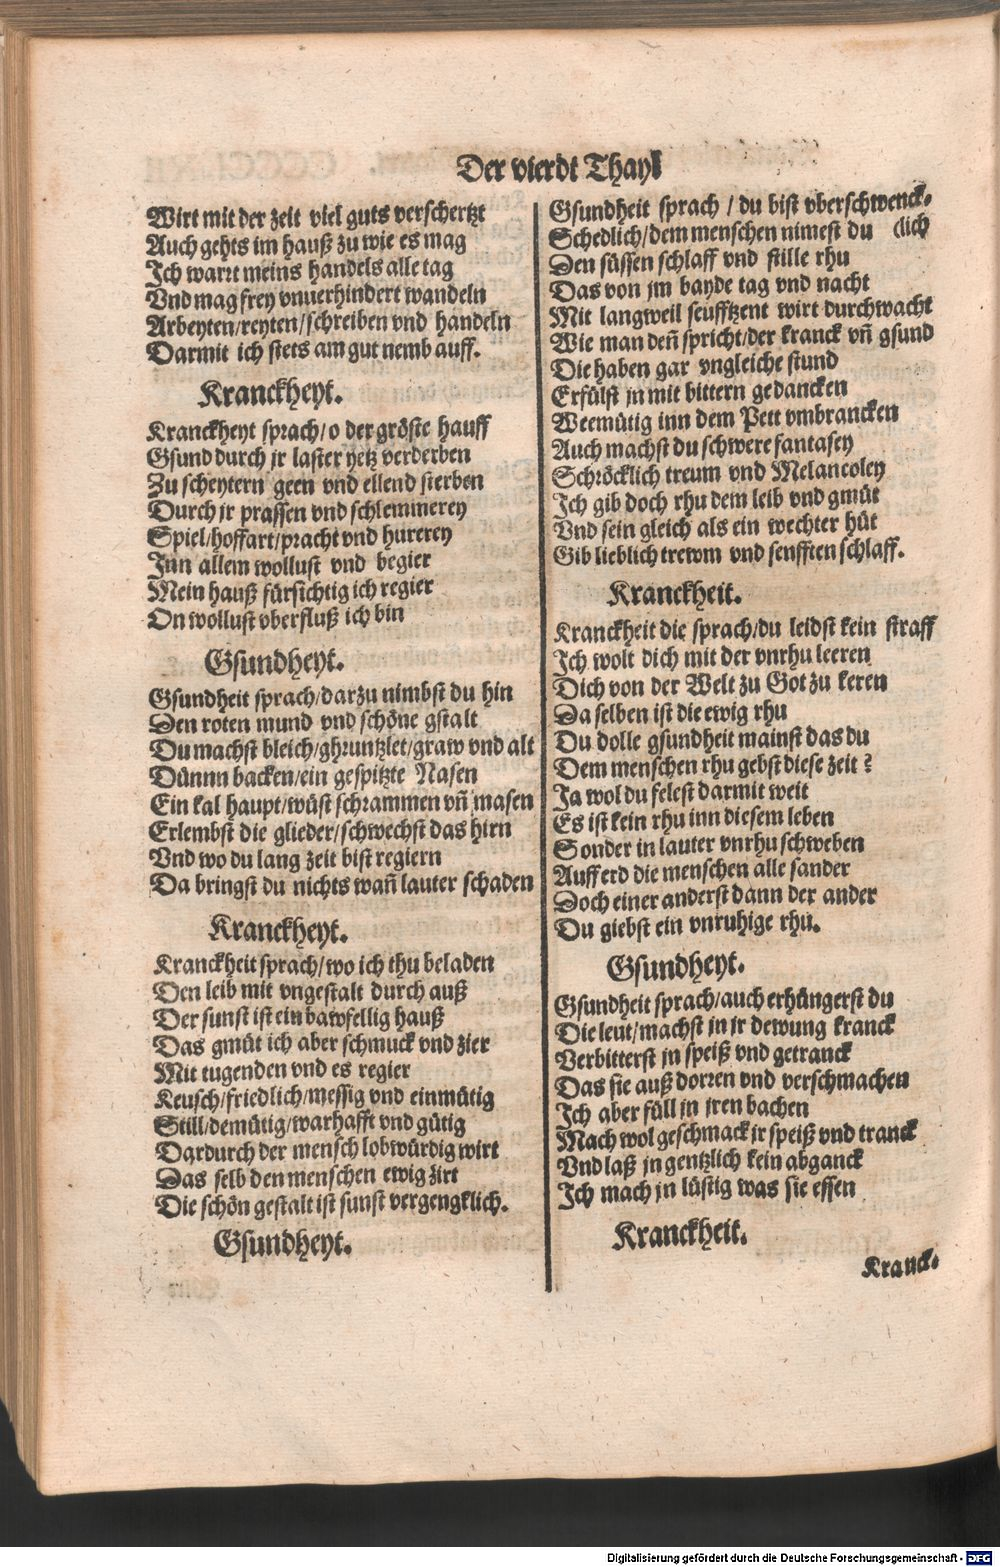 Der vierdt Thayl
Wirt mit der zeit viel guts verschertzt
Auch gehts im hauß zu wie es mag
Ich wart meins handels alle tag
Vnd mag frey vnuerhindert wandeln
Arbeyten/reyten/schreiben vnd handeln
Darmit ich stets am gut nemb auff.
Kranckheyt.
Kranckheyt sprach/o der gröste hauff
Gsund durch jr laster yetz verderben
Zu scheytern geen vnd ellend sterben
Durch jr prassen vnd schlemmerey
Spiel/hoffart/pracht vnd hurerey
Inn allem wollust vnd begier
Mein hauß fürsichtig ich regier
On wollust vberfluß ich bin
Gsundheyt.
Gsundheit sprach/darzu nimbst du hin
Den roten mund vnd schöne gstalt
Du machst bleich/ghruntzlet/graw vnd alt
Dünnn backen/ein gespitzte Nasen
Ein kal haupt/wüst schrammen vñ masen
Erlembst die glieder/schwechst das hirn
Vnd wo du lang zeit bist regiern
Da bringst du nichts wañ lauter schaden
Kranckheyt.
Kranckheit sprach/wo ich thu beladen
Den leib mit vngestalt durch auß
Der sunst ist ein bawfellig hauß
Das gmüt ich aber schmuck vnd zier
Mit tugenden vnd es regier
Keusch/friedlich/messig vnd einmütig
Still/demütig/warhafft vnd gütig
Dardurch der mensch lobwürdig wirt
Das selb den menschen ewig zirt
Die schön gestalt ist sunst vergengklich.
Gsundheyt.
Gsundheit sprach / du bist vberschwenck-
Schedlich/dem menschen nimest du (lich
Den süssen schlaff vnd stille rhu
Das von jm bayde tag vnd nacht
Mit langweil seufftzent wirt durchwacht
Wie man deñ spricht/der kranck vñ gsund
Die haben gar vngleiche stund
Erfülst jn mit bittern gedancken
Weemütig inn dem Pett vmbrancken
Auch machst du schwere fantasey
Schröcklich treum vnd Melancoley
Ich gib doch rhu dem leib vnd gmüt
Vnd sein gleich als ein wechter hüt
Gib lieblich trewm vnd senfften schlaff.
Kranckheit.
Kranckheit die sprach/du leidst kein straff
Ich wolt dich mit der vnrhu leeren
Dich von der Welt zu Got zu keren
Da selben ist die ewig rhu
Du dolle gsundheit mainst das du
Dem menschen rhu gebst diese zeit?
Ja wol du felest darmit weit
Es ist kein rhu inn diesem leben
Sonder in lauter vnrhu schweben
Auff erd die menschen alle sander
Doch einer anderst dann der ander
Du giebst ein vnruhige rhu.
Gsundheyt.
Gsundheit sprach/auch erhüngerst du
Die leut/machst jn jr dewung kranck
Verbitterst jn speiß vnd getranck
Das sie auß dorren vnd verschmachen
Ich aber füll jn jren bachen
Mach wol geschmack jr speiß vnd tranck
Vnd laß jn gentzlich kein abganck
Ich mach jn lüstig was sie essen
Kranckheit.
Kranck-
Digitalisierung gefördert durch die Deutsche Forschungsgemeinschaft - DFG